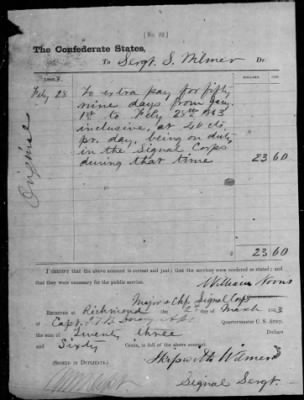 [No. 22]
The Confederate States,
To Sergt. S. Wilmer Dr
DOLLARS. CENTS.
Feby 28 To extra pay for fifty
nine days from Jany
1st to Feby 28th 1863
inclusive, at 40 cts
pr. day, being on duty
in the Signal Corps
during that time 23 60
Original
23 60
I CERTIFY that the above account is correct and just; that the services were rendered as stated; and
that they were necessary for the public service.
William
Major & Chf Signal Corps
RECEIVED at Richmond the 2d of March 1863
of Capt. Quartermaster C. S. Army,
the sum of Twenty three Dollars
and Sixty Cents, in full of the above account.
(SIGNED IN DUPLICATE.)
Wilmer
Signal Sergt.